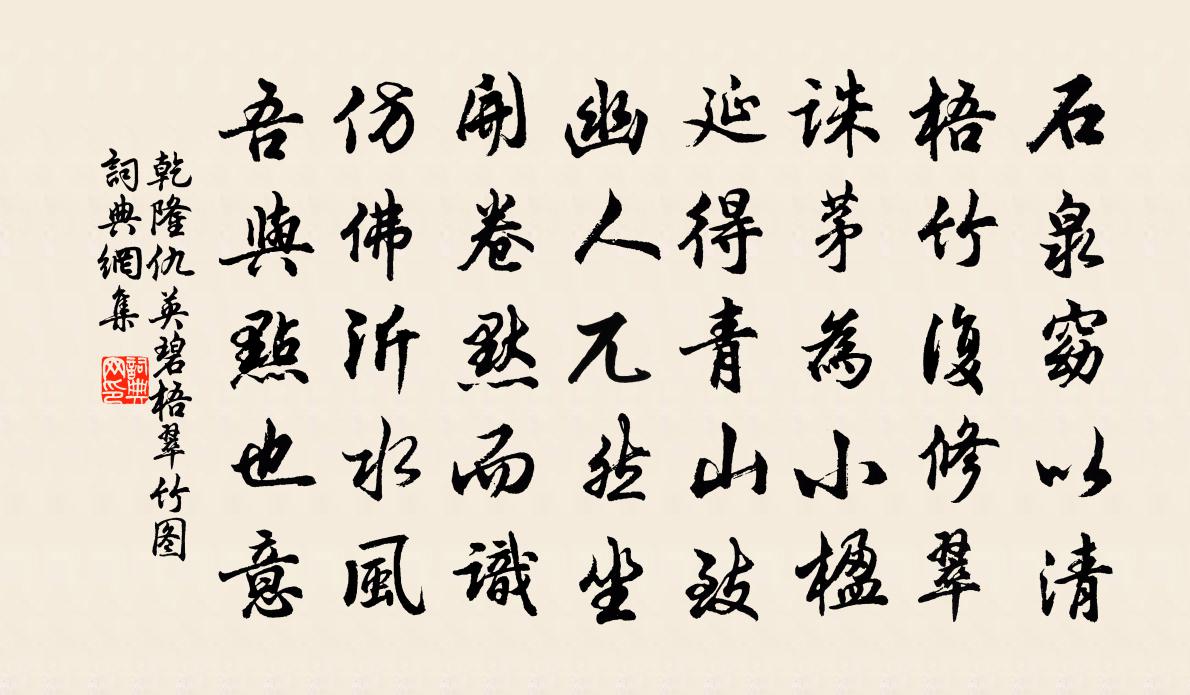 石泉窈以清
梧竹復修翠
誅茅為小楹
延得青山致
幽人兀然坐
開卷默而識
仿佛沂水風
吾與點也意
乾隆仇英碧梧翠竹图
詞典網集
詞典
网印